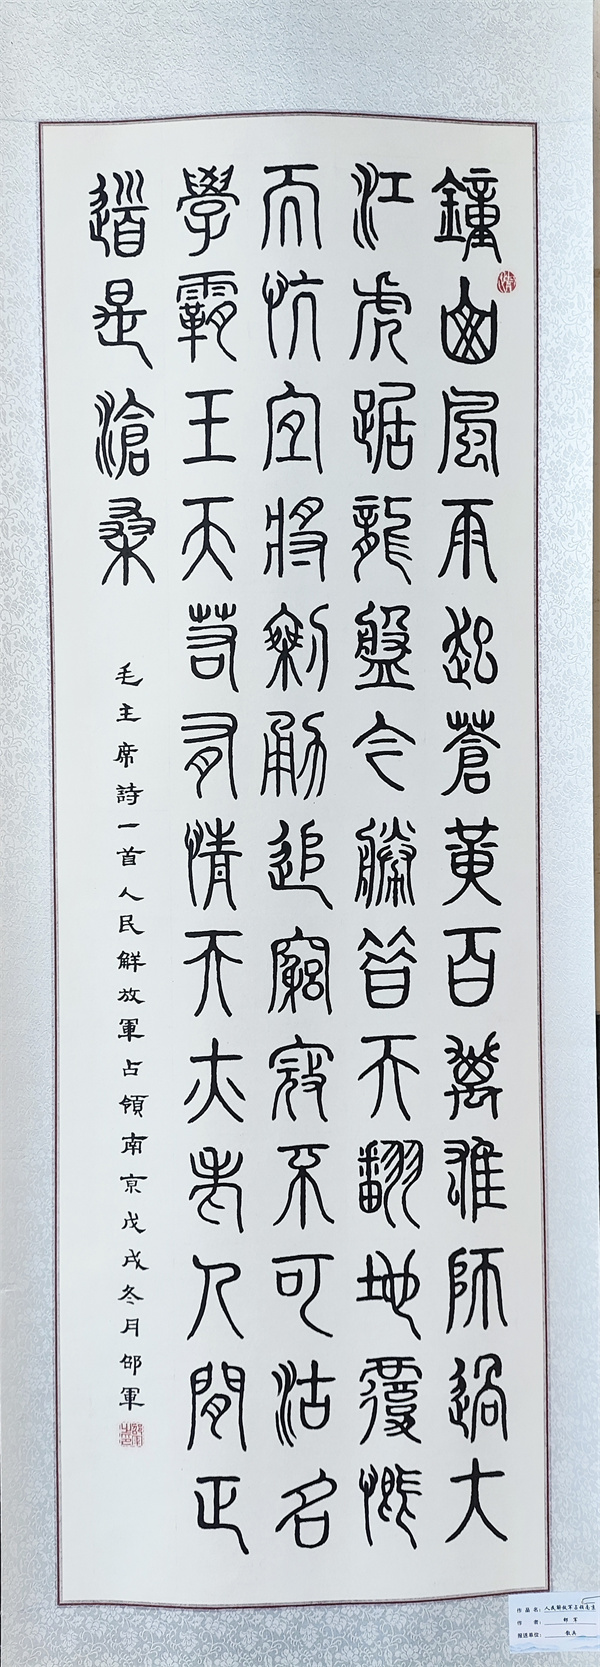 鐘山風雨起蒼黃百萬雄師過大
江虎踞龍盤今勝昔天翻地覆慨
而忼宜將剩勇追窮寇不可沽名
學霸王天若有情天亦老人間正
道是滄桑
毛主席詩一首人民解放軍占領南京戊戌冬月邵軍
作品名：人民解放军占领南京
作者：邵军
报送单位：